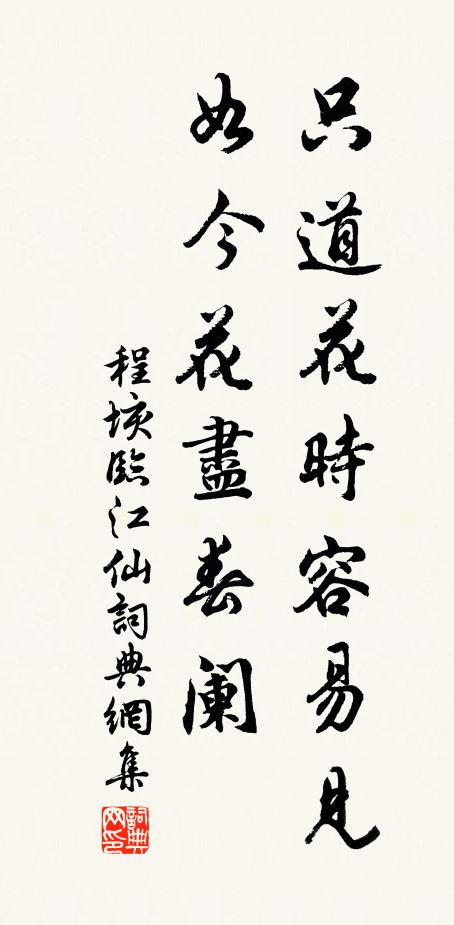 只道花時容易見
如今花盡春阑
程垓臨江仙詞典網集
詞典网印